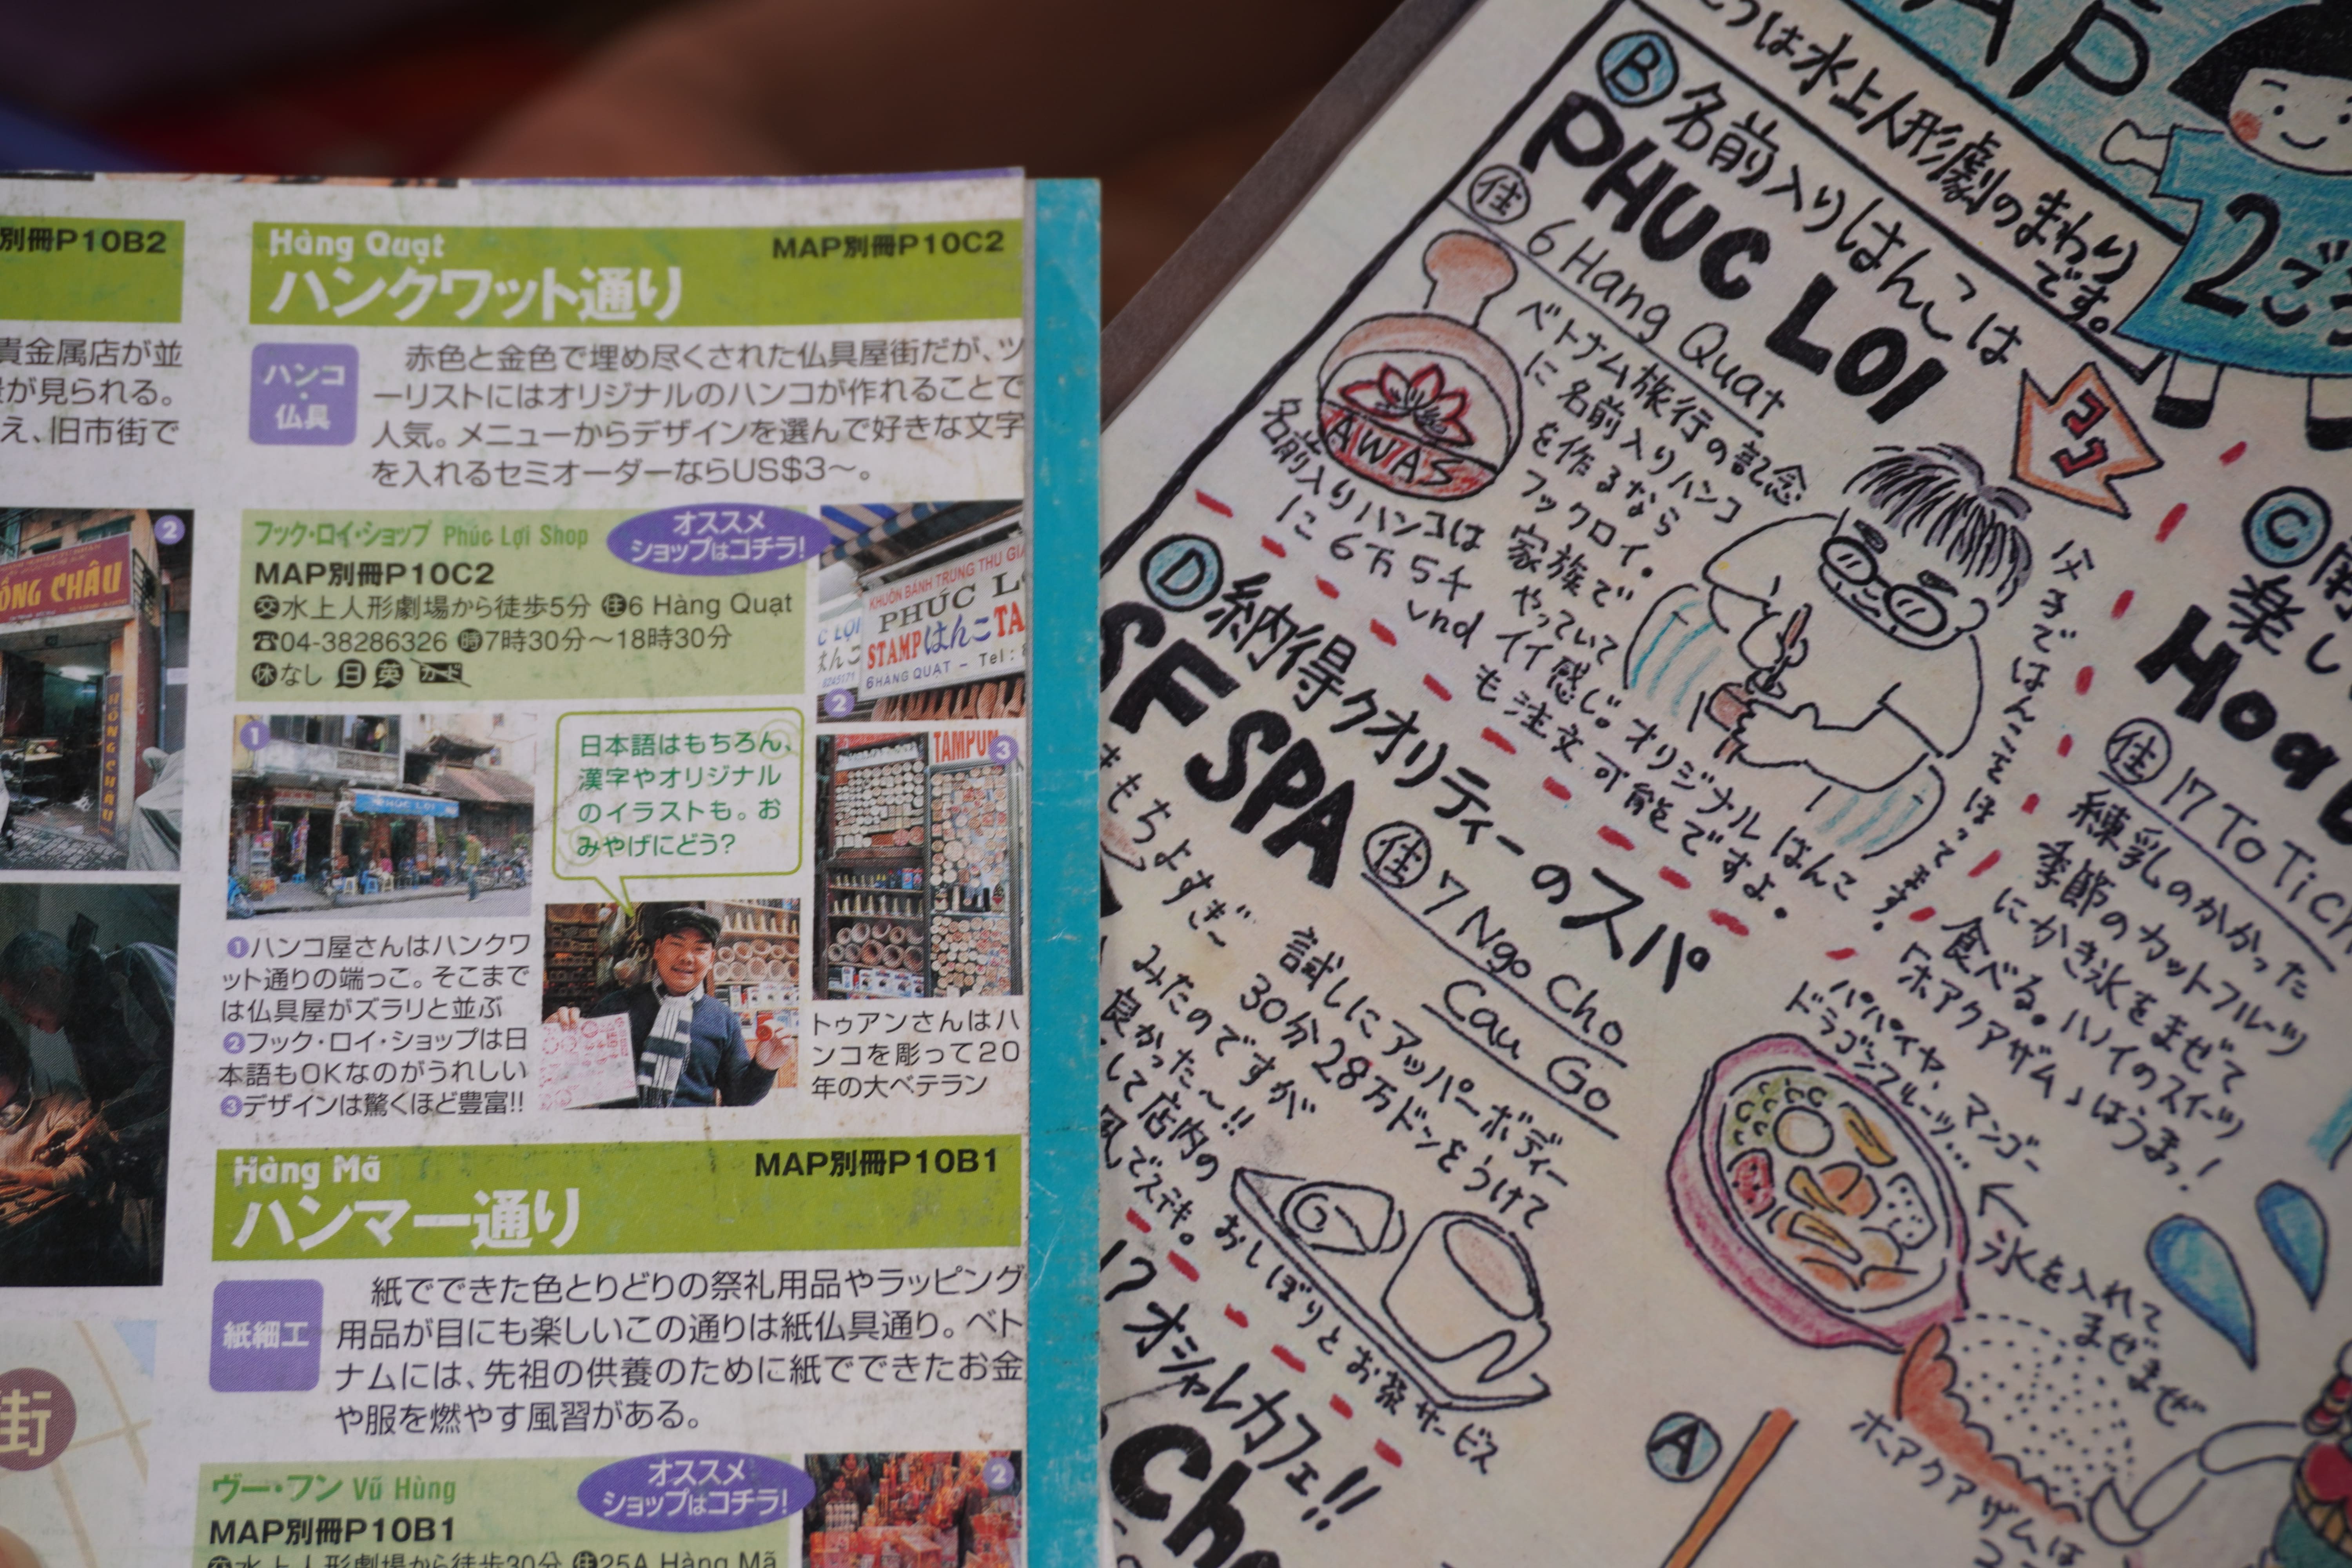 別冊P10B2
貴金属店が並
が見られる。
え、旧市街で
2
ỒNG CHÂU
HỒNG CHÂU
街
Hàng Quạt
MAP別冊P10C2
ハンクワット通り
ハンコ
・
仏具
赤色と金色で埋め尽くされた仏具屋街だが、ツ
ーリストにはオリジナルのハンコが作れることで
人気。メニューからデザインを選んで好きな文字
を入れるセミオーダーならUS$3〜。
フック・ロイ・ショップ Phúc Lợi Shop
オススメ
ショップはコチラ!
MAP別冊P10C2
交水上人形劇場から徒歩5分 住6 Hàng Quạt
☎04-38286326 時7時30分〜18時30分
休なし 日 英 カード
KHUÔN BÁNH TRUNG THU GIA
PHÚC L
STAMPはんこTA
6HANG QUAT – Tel: 8
C LỢI
はんこ
8245171
2
1
PHUC LOI
日本語はもちろん、
漢字やオリジナル
のイラストも。お
みやげにどう?
TAMPON
3
❶ハンコ屋さんはハンクワ
ット通りの端っこ。そこまで
は仏具屋がズラリと並ぶ
❷フック・ロイ・ショップは日
本語もOKなのがうれしい
❸デザインは驚くほど豊富!!
トゥアンさんはハ
ンコを彫って20
年の大ベテラン
Hàng Mã
MAP別冊P10B1
ハンマー通り
紙細工
紙でできた色とりどりの祭礼用品やラッピング
用品が目にも楽しいこの通りは紙仏具通り。ベト
ナムには、先祖の供養のために紙でできたお金
や服を燃やす風習がある。
ヴー・フン Vũ Hùng
オススメ
ショップはコチラ!
MAP別冊P10B1
交水上人形劇場から徒歩30分 住25A Hàng Mã
2
AP
つは水上人形劇のまわり
です。
2ご
B 名前入りはんこは
PHUC LOI
住 6 Hang Quat
ココ
AWAS
名前入りハンコは
に6万5千
vnd
ベトナム旅行の記念
に名前入りハンコ
を作るなら
フックロイ。
家族で
やっていて
イイ感じ。オリジナルはんこ
も注文可能ですよ。
父子ではんこをほってます。
C
楽し
Hoa
住 17 To Tich
練乳のかかった
季節のカットフルーツ
にかき氷をまぜて
食べる。ハノイのスイーツ
「ホアクアザム」はうまっ!
パパイヤ、マンゴー
ドラゴンフルーツ…
氷を入れて
まぜまぜ
ホアクアザムは
D 納得クオリティーのスパ
SF SPA
住 7 Ngo Cho
Cau Go
きもちよすぎ〜
試しにアッパーボディー
30分28万ドンをうけて
みたのですが
良かった〜!!
して店内の
風でステキ。
おしぼりとお茶サービス
オシャレカフェ!!
Cha
A